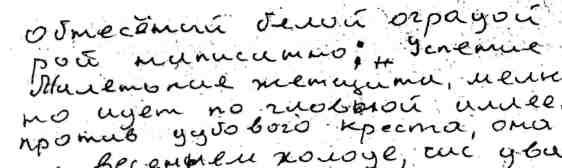 обнесённый белой оградой
рой написано: „Успение
Маленькая женщина, мелк
но идет по главной аллее.
против дубового креста, она
весеннем холоде, час, два